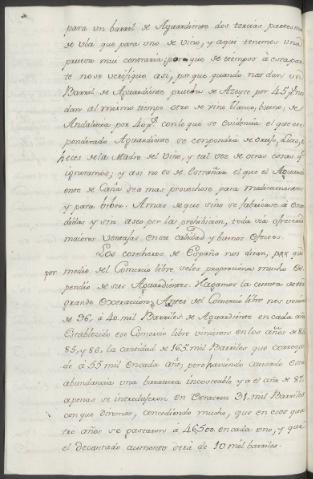 para un barril de Aguardiente dos tercias partes mas
de Uba que para uno de vino, y aqui tenemos una
prueva mui contraria; porque de tiempos á esta parte
te no se verifique asi, porque quando nos dan un
Barril de Aguardiente prueba de Azeyte por 45 p.s nos
dan al mismo tiempo otro de vino blanco, bueno, de
Andalucia por 40 p.s con lo que se evidencía el que ese
ponderado Aguardiente se compondrá de orujo,
heces de la Madre del Vino, y tal vez de otras cosas q.e
ignoramos; y asi no es de estrañar el que el Aguardi
ente de Caña sea mas provechoso para medicamentos
y para beber. A mas de que si no se fabricase á escon
didas y sin aseo por la prohibicion, toda via ofreceria
maiores ventajas en su calidad y buenos efectos.
Los cosecheros de España nos diran, que
por medio del Comercio libre se les proporciona mucho ex
pendio de sus Aguardientes. Hagamos la cuenta de este
grande Antes del Comercio libre nos venian
de 36, á 40 mil Barriles de Aguardiente en cada año
Establecido ese Comercio libre vinieron en los años de 84
85, y 86, la cantidad de 165 mil Barriles que corresponde
á 55 mil en cada año, pero haviendo causado esta
abundancia una baratura incosteable, ya el año de 87,
apenas se introdujeron en Veracruz 31 mil Barriles
con que diremos, concediendo mucho, que en esos qua
tro años se gastaron á 46500 en cada uno, y que
el decantado aumento será de 10 mil barriles.